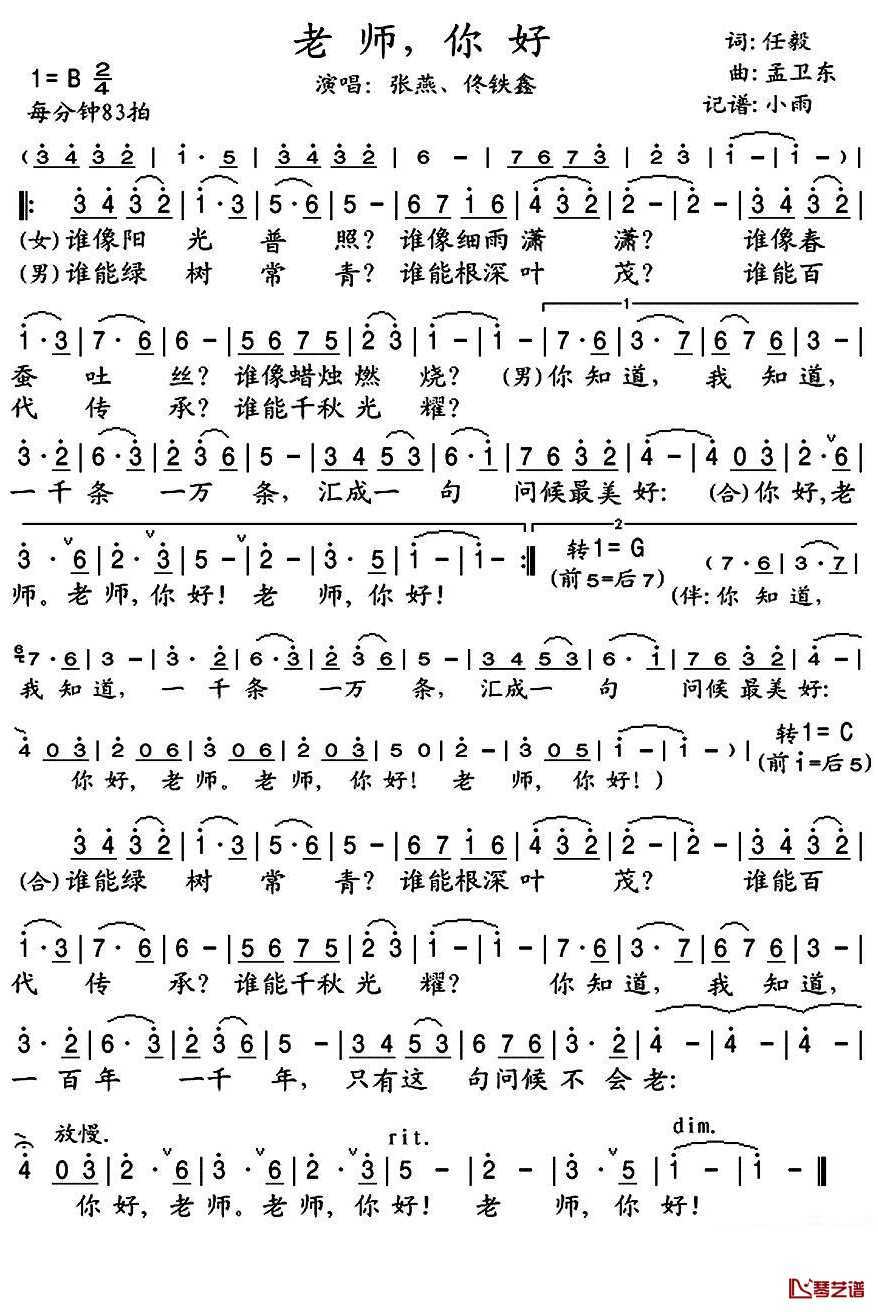 老师，你好
词:任毅
1=B 2/4
演唱：张燕、佟铁鑫
曲:孟卫东
每分钟83拍
记谱:小雨
(3 4 3 2 | 1· 5 | 3 4 3 2 | 6 - | 7 6 7 3 | 2 3 | 1 - | 1 - ) |
‖: 3 4 3 2 | 1· 3 | 5· 6 | 5 - | 6 7 1 6 | 4 3 2 | 2 - | 2 - | 3 4 3 2 |
(女)谁像阳光普照？谁像细雨潇潇？谁像春
(男)谁能绿树常青？谁能根深叶茂？谁能百
1
1· 3 | 7· 6 | 6 - | 5 6 7 5 | 2 3 | 1 - | 1 - | 7· 6 | 3· 7 | 6 7 6 | 3 - |
蚕吐丝？谁像蜡烛燃烧？(男)你知道，我知道，
代传承？谁能千秋光耀？
3· 2 | 6· 3 | 2 3 6 | 5 - | 3 4 5 3 | 6· 1 | 7 6 3 2 | 4 - | 4 0 3 | 2· ∨ 6 |
一千条一万条，汇成一句问候最美好：(合)你好,老
2
3· ∨ 6 | 2· ∨ 3 | 5 - ∨ | 2 - | 3· 5 | 1 - | 1 - :‖ 转1=G (7· 6 | 3· 7 |
(前5=后7)
师。老师,你好！老师,你好！(伴:你知道，
6 7· 6 | 3 - | 3· 2 | 6· 3 | 2 3 6 | 5 - | 3 4 5 3 | 6· 1 | 7 6 3 2 | 4 - |
我知道，一千条一万条，汇成一句问候最美好：
4 0 3 | 2 0 6 | 3 0 6 | 2 0 3 | 5 0 | 2 - | 3 0 5 | 1 - | 1 - ) | 转1=C
(前1=后5)
你好，老师。老师，你好！老师，你好！)
3 4 3 2 | 1· 3 | 5· 6 | 5 - | 6 7 1 6 | 4 3 2 | 2 - | 2 - | 3 4 3 2 |
(合)谁能绿树常青？谁能根深叶茂？谁能百
1· 3 | 7· 6 | 6 - | 5 6 7 5 | 2 3 | 1 - | 1 - | 7· 6 | 3· 7 | 6 7 6 | 3 - |
代传承？谁能千秋光耀？你知道，我知道，
3· 2 | 6· 3 | 2 3 6 | 5 - | 3 4 5 3 | 6 7 6 | 3· 2 | 4 - | 4 - | 4 - |
一百年一千年，只有这句问候不会老：
放慢.
rit.
dim.
4 0 3 | 2· ∨ 6 | 3· ∨ 6 | 2· ∨ 3 | 5 - | 2 - | 3· ∨ 5 | 1 - | 1 - ‖
你好，老师。老师，你好！老师，你好！
琴艺谱